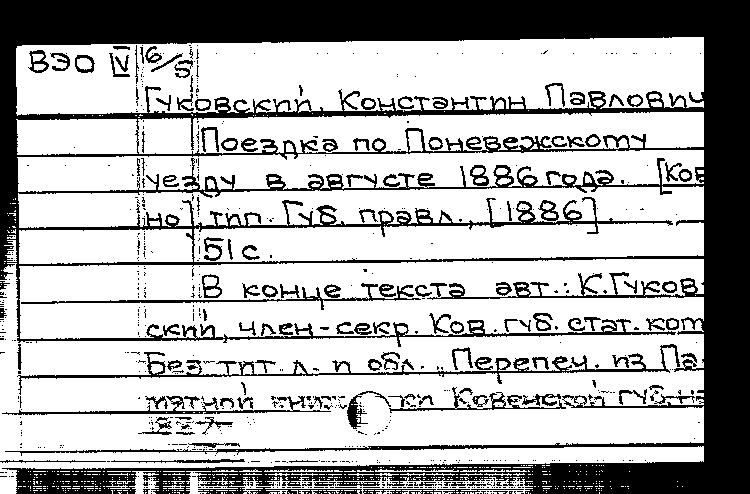 ВЭО IV 6/5
Гуковский, Константин Павлович
Поездка по Поневежскому
уезду в августе 1886 года. [Ков
но], тип. Губ. правл., [1886].
51 с.
В конце текста авт.: К. Гуков-
ский, член-секр. Ков. губ. стат. ком
Без тит. л. и обл. „Перепеч. из Па-
мятной книжки Ковенской губ. на
1887